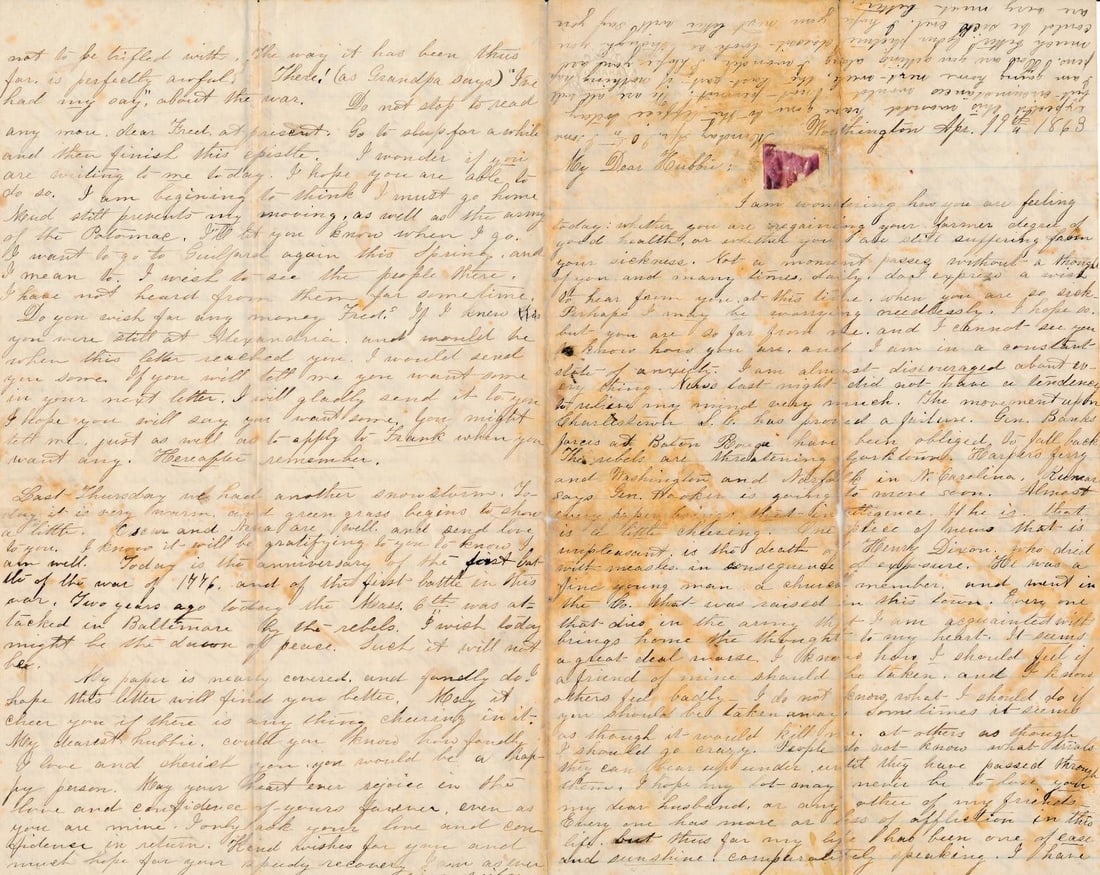 Worthington Apr. 19th 1863
My Dear Hubbie:
I am wondering how you are feeling
today: whether you are regaining your former degree of
good health, or whether you are still suffering from
your sickness. Not a moment passes without a thought
upon and many times, daily, do I express a wish
to hear from you at this time, when you are so sick.
Perhaps I may be worrying needlessly. I hope so.
but you are so far from me, and I cannot see you
to know how you are, and I am in a constant
state of anxiety. I am almost discouraged about ev-
ery thing. News last night did not have a tendency
to relieve my mind very much. The movement upon
Charlestown S. C. has proved a failure. Gen. Banks
forces at Baton Rouge have been obliged to fall back
The rebels are threatening Yorktown, Harpers ferry
and Washington and Norfolk in N. Carolina. Rumor
says Gen. Hooker is going to move soon. Almost
every paper brings that intelligence. If he is, that
is a little cheering. One piece of news that is
unpleasant, is the death of Henry Dixon, who died
with measles in consequence of exposure. He was a
fine young man a church member, and went in
the Co. that was raised in this town. Every one
that dies in the army that I am acquainted with
brings home the thought to my heart. It seems
a great deal worse. I know how I should feel if
a friend of mine should be taken, and I know
others feel badly. I do not know what I should do if
you should be taken away. Sometimes it seems
as though it would kill me, at others as though
I should go crazy. People do not know what trials
they can bear up under, until they have passed through
them. I hope my lot may never be to lose you
my dear husband, or any other of my friends.
Every one has more or less of affliction in this
life, but thus far my life has been one of ease
and sunshine, comparatively speaking. I have
not to be trifled with. The way it has been thus
far, is perfectly awful. There! (as Grandpa says) "I've
had my say", about the war. Do not stop to read
any more, dear Fred, at present. Go to sleep for a while
and then finish this epistle. I wonder if you
are writing to me today. I hope you are able to
do so. I am begining to think I must go home
Mud still prevents my moving, as well as the army
of the Potomac. I'll let you know when I go.
I want to go to Guilford again this Spring, and
I mean to. I wish to see the people there.
I have not heard from them for some time.
Do you wish for any money Fred? If I knew
you were still at Alexandria, and would be
when this letter reached you, I would send
you some. If you will tell me you want some
in your next letter, I will gladly send it to you
I hope you will say you want some, you might
tell me just as well as to apply to Frank when you
want any. Hereafter remember.
Last Thursday we had another snowstorm. To-
day it is very warm, and green grass begins to show
a little. and are well and send love
to you. I know it will be gratifying to you to know I
am well. Today is the anniversary of the first bat
tle of the war of 1776, and of the first battle in this
war. Two years ago today the Mass. 6th was at-
tacked in Baltimore by the rebels. I wish today
might be the dawn of peace. Such it will not
be.
My paper is nearly covered, and fondly do I
hope this letter will find you better. May it
cheer you if there is any thing cheering in it.
My dearest hubbie, could you know how fondly
I love and cherish you, you would be a hap-
py person. May your heart ever rejoice in the
love and confidence of yours forever, even as
you are mine. I only ask your love and con
fidence in return. Kind wishes for you and
much hope for your speedy recovery I am as ever